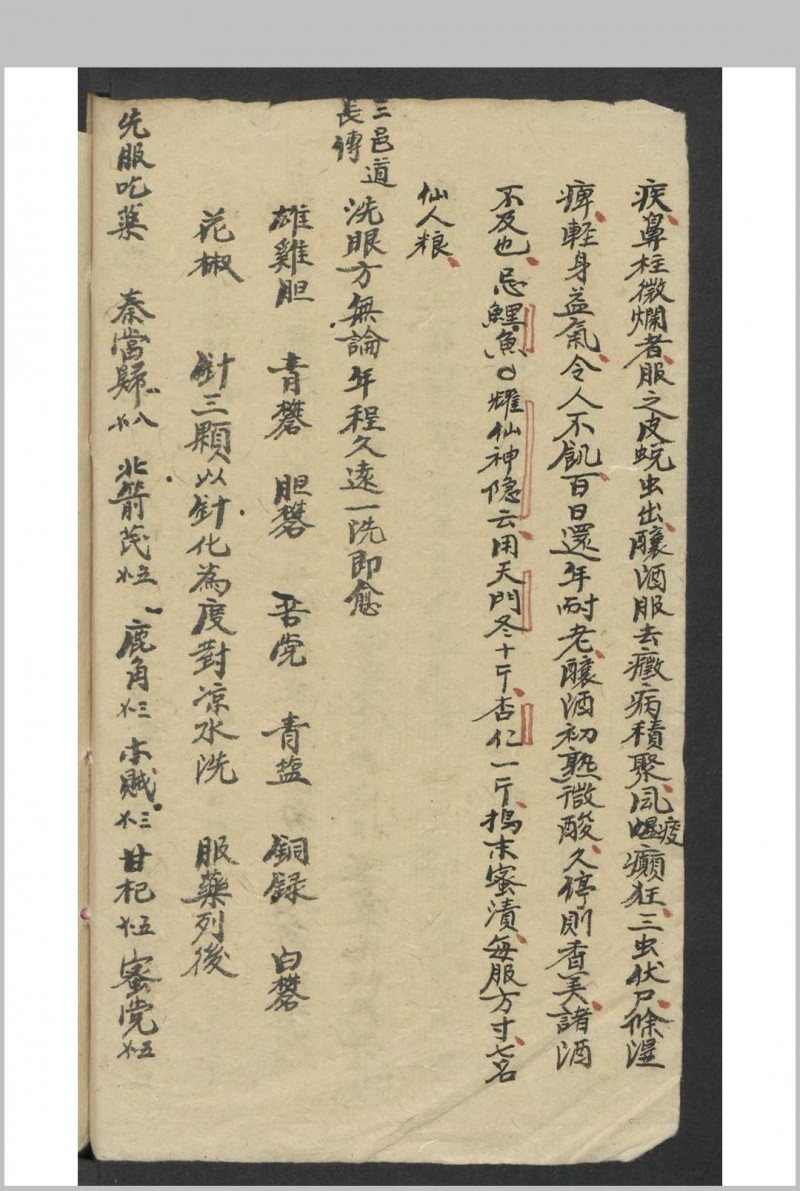 疾鼻柱微爛者服之皮蚘虫出釀酒服去癥病積聚風𤸁痰癲狂三虫伏尸除湿
痺輕身益氣令人不飢百日還年耐老釀酒初熟微酸久停則香美諸酒
不及也忌鯉魚○臞仙神隐云用天門冬十斤杏仁一斤搗末蜜漬每服方寸七名
仙人粮
三邑道
長傳
洗眼方無論年程久遠一洗即愈
雄雞胆 青礬 胆礬 吾党 青盐 銅録 白礬
花椒 針三顆以針化為度對凉水洗 服藥列後
先服吃藥 秦當歸 北箭芪 鹿角 木賊 甘杞 蜜党